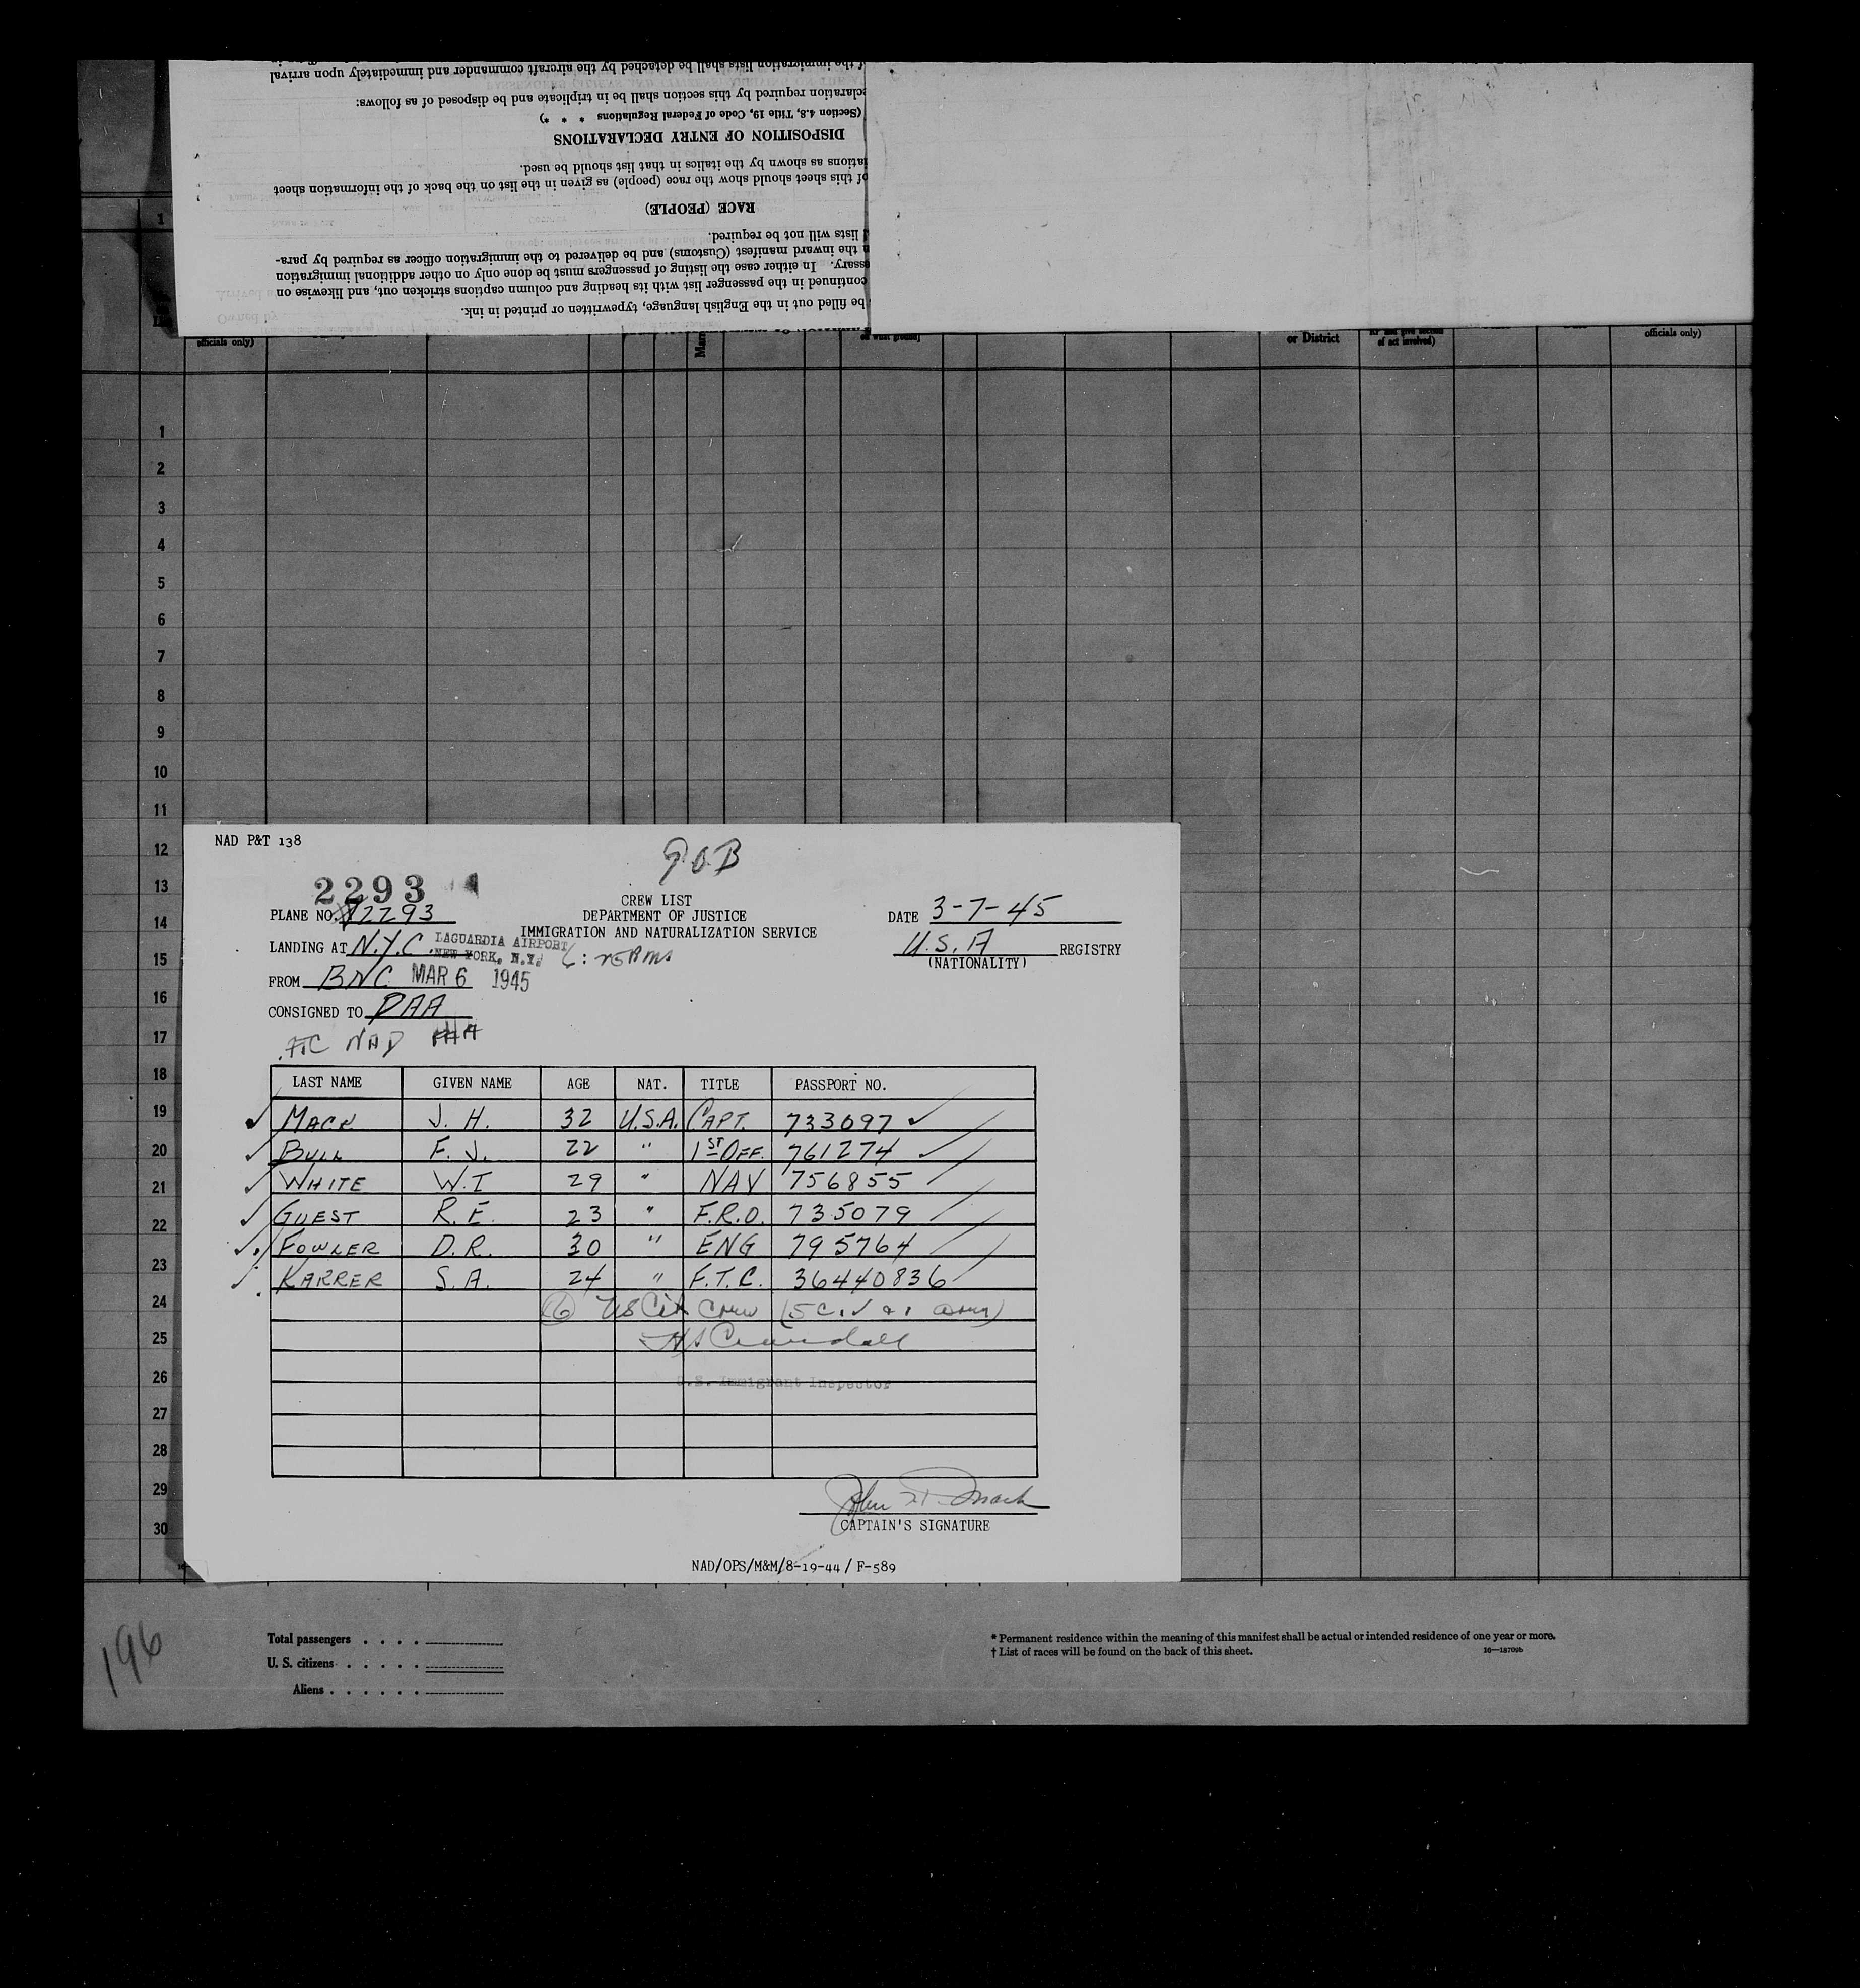 f the immigration lists shall be detached by the aircraft commander and immediately upon arrival
claration required by this section shall be in triplicate and be disposed of as follows:
(Section 4.8, Title 19, Code of Federal Regulations * * *)
DISPOSITION OF ENTRY DECLARATIONS
ations as shown by the italics in that list should be used.
of this sheet should show the race (people) as given in the list on the back of the information sheet
RACE (PEOPLE)
lists will not be required.
the inward manifest (Customs) and be delivered to the immigration officer as required by para-
ssary. In either case the listing of passengers must be done only on other additional immigration
continued in the passenger list with its heading and column captions stricken out, and likewise on
be filled out in the English language, typewritten or printed in ink.
officials only)
or District
of act involved)
officials only)
1
1
2
3
4
5
6
7
8
9
10
11
12
13
14
15
16
17
18
19
20
21
22
23
24
25
26
27
28
29
30
NAD P&T 138
2293
CREW LIST
PLANE NO. 2293 DEPARTMENT OF JUSTICE DATE 3-7-45
IMMIGRATION AND NATURALIZATION SERVICE
LANDING AT N.Y.C. LAGUARDIA AIRPORT NEW YORK, N.Y. U.S.A REGISTRY
(NATIONALITY)
FROM BNC MAR 6 1945
CONSIGNED TO PAA
NAD
LAST NAME GIVEN NAME AGE NAT. TITLE PASSPORT NO.
MACK J. H. 32 U.S.A. CAPT. 733097
BULL F. J. 22 " 1ST OFF. 761274
WHITE W. I 29 " NAV 756855
GUEST R. E. 23 " F.R.O. 735079
FOWLER D. R. 30 " ENG 795764
KARRER S. A. 24 " F.T.C. 36440836
6 US Cit Crew (5 Civ & 1 Army)
U.S. Immigrant Inspector
CAPTAIN'S SIGNATURE
NAD/OPS/M&M/8-19-44 / F-589
196
Total passengers
U. S. citizens
Aliens
* Permanent residence within the meaning of this manifest shall be actual or intended residence of one year or more.
† List of races will be found on the back of this sheet.